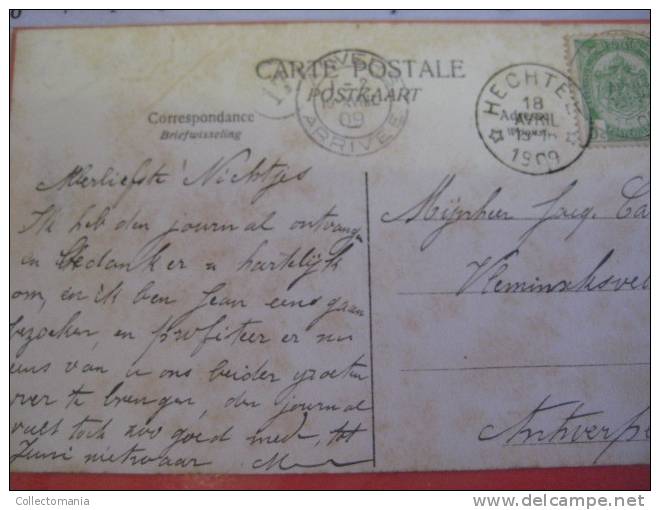 CARTE POSTALE
POSTKAART
Correspondance
Briefwisseling
ANVERS
ARRIVEE
09
HECHTEL
18
AVRIL
1909
Adresse
Allerliefste Nichtjes
Ik heb den journal ontvangen
en bedank er u hartelijk
om, en ik ben Jean eens gaan
bezoeken, en profiteer er nu
eens van u ons beider groeten
over te brengen, den journal
valt toch zoo goed mee, tot
Juni nietwaar
Mijnheer Jacq. Ca
Vleminckxvel
Antwerpe
Collectomania
www.delcampe.net